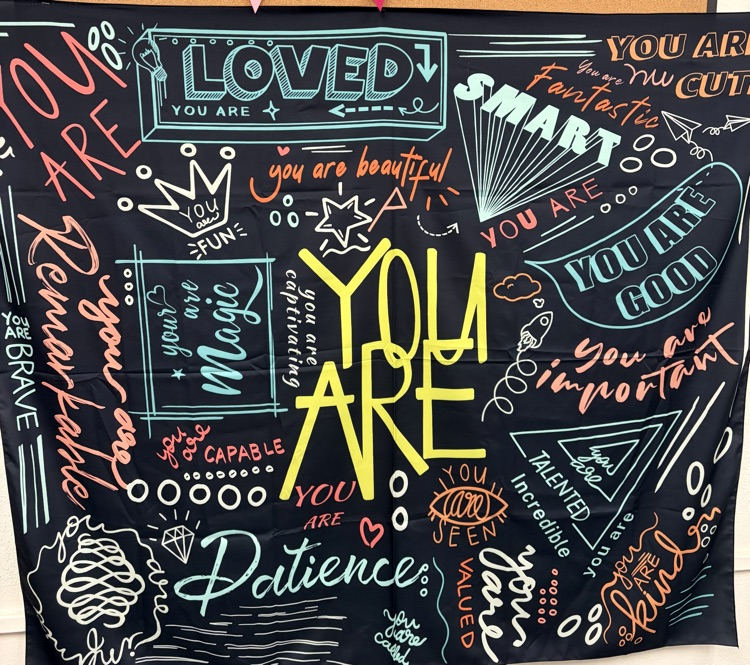 YOU
ARE
LOVED
YOU ARE
YOU ARE
CUTE
You are
Fantastic
SMART
YOU ARE
you are beautiful
YOU
are
FUN
YOU ARE
GOOD
you are
Remarkable
your are
Magic
you are
captivating
YOU
ARE
you are
important
YOU
ARE
BRAVE
you are
CAPABLE
YOU
ARE
Patience
YOU
are
SEEN
you
are
TALENTED
Incredible
you are
you are
VALUED
you
ARE
kind
you are